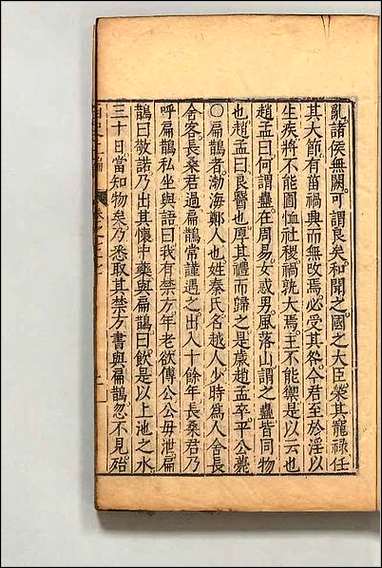 亂諸侯無闕可謂良矣和聞之國之大臣榮其寵祿任
其大節有菑禍興而無改焉必受其咎今君至於淫以
生疾將不能圖恤社稷禍孰大焉主不能禦是以云也
趙孟曰何謂蠱在周易女惑男風落山謂之蠱皆同物
也趙孟曰良醫也厚其禮而歸之是歲趙孟卒平公薨
〇扁鵲者渤海鄭人也姓秦氏名越人少時爲人舍長
舍客長桑君過扁鵲常謹遇之出入十餘年長桑君乃
呼扁鵲私坐與語曰我有禁方年老欲傳公公毋泄扁
鵲曰敬諾乃出其懷中藥與扁鵲曰飲是以上池之水
三十日當知物矣乃悉取其禁方書與扁鵲忽不見殆